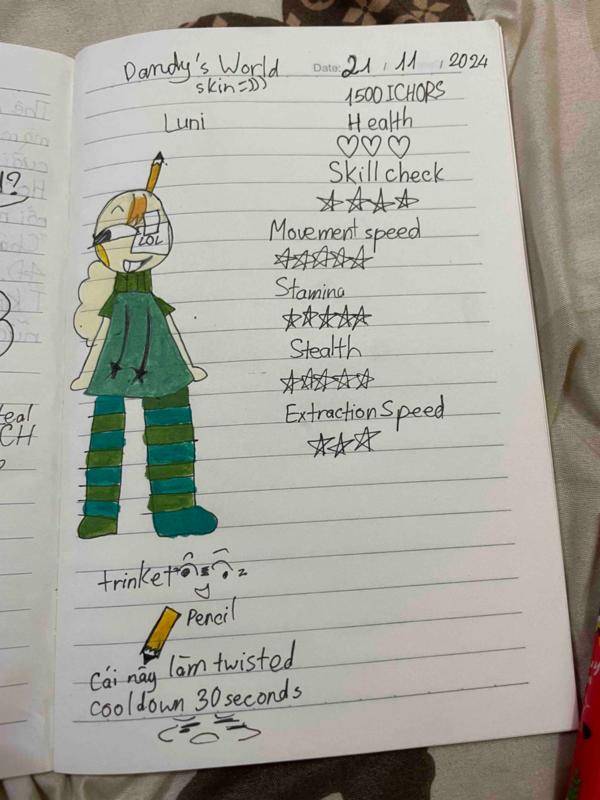 Dandy's World
skin=)))
Date: 21 / 11 / 2024
Luni
1500 ICHORS
Health
Skill check
Movement speed
Stamina
Stealth
Extraction Speed
LOL
trinket
z
Pencil
Cái này làm twisted
cooldown 30 seconds
?
eal
CH